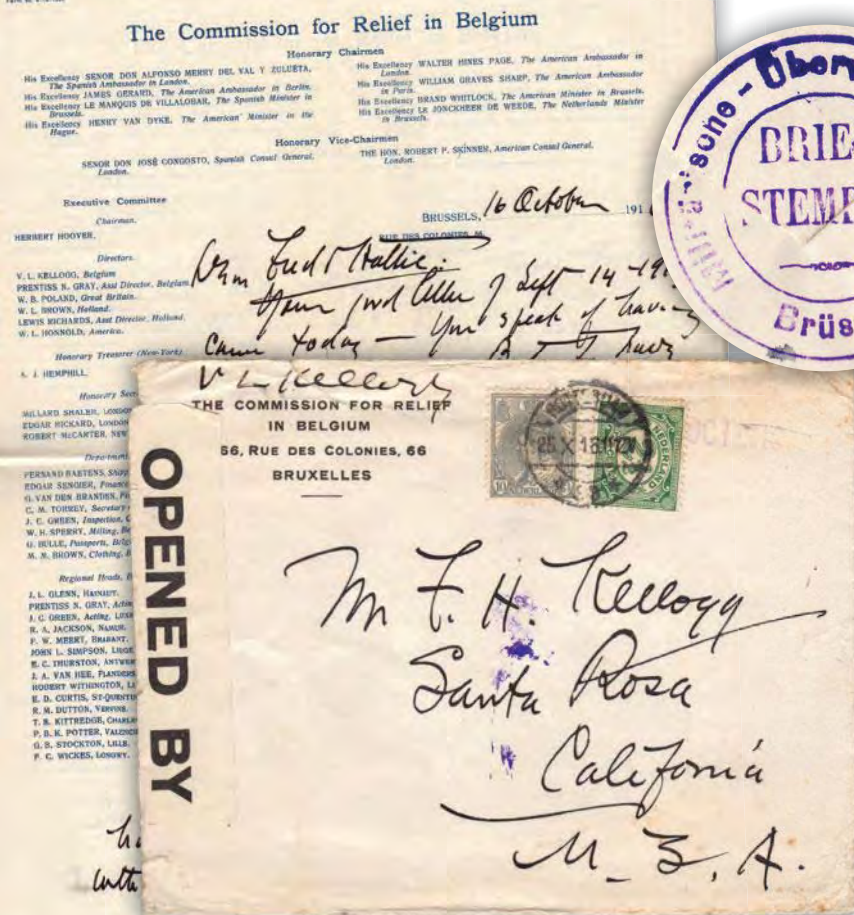 The Commission for Relief in Belgium
Honorary Chairmen
His Excellency SENOR DON ALFONSO MERRY DEL VAL Y ZULUETA,
The Spanish Ambassador in London.
His Excellency JAMES GERARD, The American Ambassador in Berlin.
His Excellency LE MARQUIS DE VILLALOBAR, The Spanish Minister in
Brussels.
His Excellency HENRY VAN DYKE, The American Minister in the
Hague.
His Excellency WALTER HINES PAGE, The American Ambassador in
London.
His Excellency WILLIAM GRAVES SHARP, The American Ambassador
in Paris.
His Excellency BRAND WHITLOCK, The American Minister in Brussels.
His Excellency LE JONCKHEER DE WEEDE, The Netherlands Minister
in Brussels.
Honorary Vice-Chairmen
SENOR DON JOSÉ CONGOSTO, Spanish Consul General,
London.
THE HON. ROBERT P. SKINNER, American Consul General,
London.
Executive Committee
Chairman.
HERBERT HOOVER.
Directors.
V. L. KELLOGG, Belgium
PRENTISS N. GRAY, Asst Director, Belgium.
W. B. POLAND, Great Britain.
W. L. BROWN, Holland.
LEWIS RICHARDS, Asst Director, Holland.
W. L. HONNOLD, America.
Honorary Treasurer (New-York)
A. J. HEMPHILL.
Honorary Sec
MILLARD SHALER, LONDON
EDGAR RICKARD, LONDON
ROBERT McCARTER, NEW
Department
FERNAND BAETENS, Ship
EDGAR SENGIER, Finance
G. VAN DEN BRANDEN,
C. M. TORREY, Secretary
J. C. GREEN, Inspection,
W. H. SPERRY, Milling, Be
G. BULLE, Passports, Belg
M. N. BROWN, Clothing, B
Regional Heads,
J. L. GLENN, HAINAUT.
PRENTISS N. GRAY, Actin
J. C. GREEN, Acting, LUXE
R. A. JACKSON, NAMUR.
F. W. MEERT, BRABANT.
JOHN L. SIMPSON, LIEGE
E. C. THURSTON, ANTWER
J. A. VAN HEE, FLANDERS
ROBERT WITHINGTON,
E. D. CURTIS, ST-QUENTIN
R. M. DUTTON, VERVINS.
T. B. KITTREDGE, CHARLE
P. B. K. POTTER, VALENCI
G. B. STOCKTON, LILLE.
P. C. WICKES, LONGWY.
BRUSSELS, 16 October 191
RUE DES COLONIES,
Dear Fred & Hallie:
Your good letter of Sept 14-19
came today — You speak of having
V L Kellogg
THE COMMISSION FOR RELIEF
IN BELGIUM
66, RUE DES COLONIES, 66
BRUXELLES
OPENED BY
NEDERLAND
Mr F. H. Kellogg
Santa Rosa
California
U. S. A.
BRIE
STEMP
Brüs